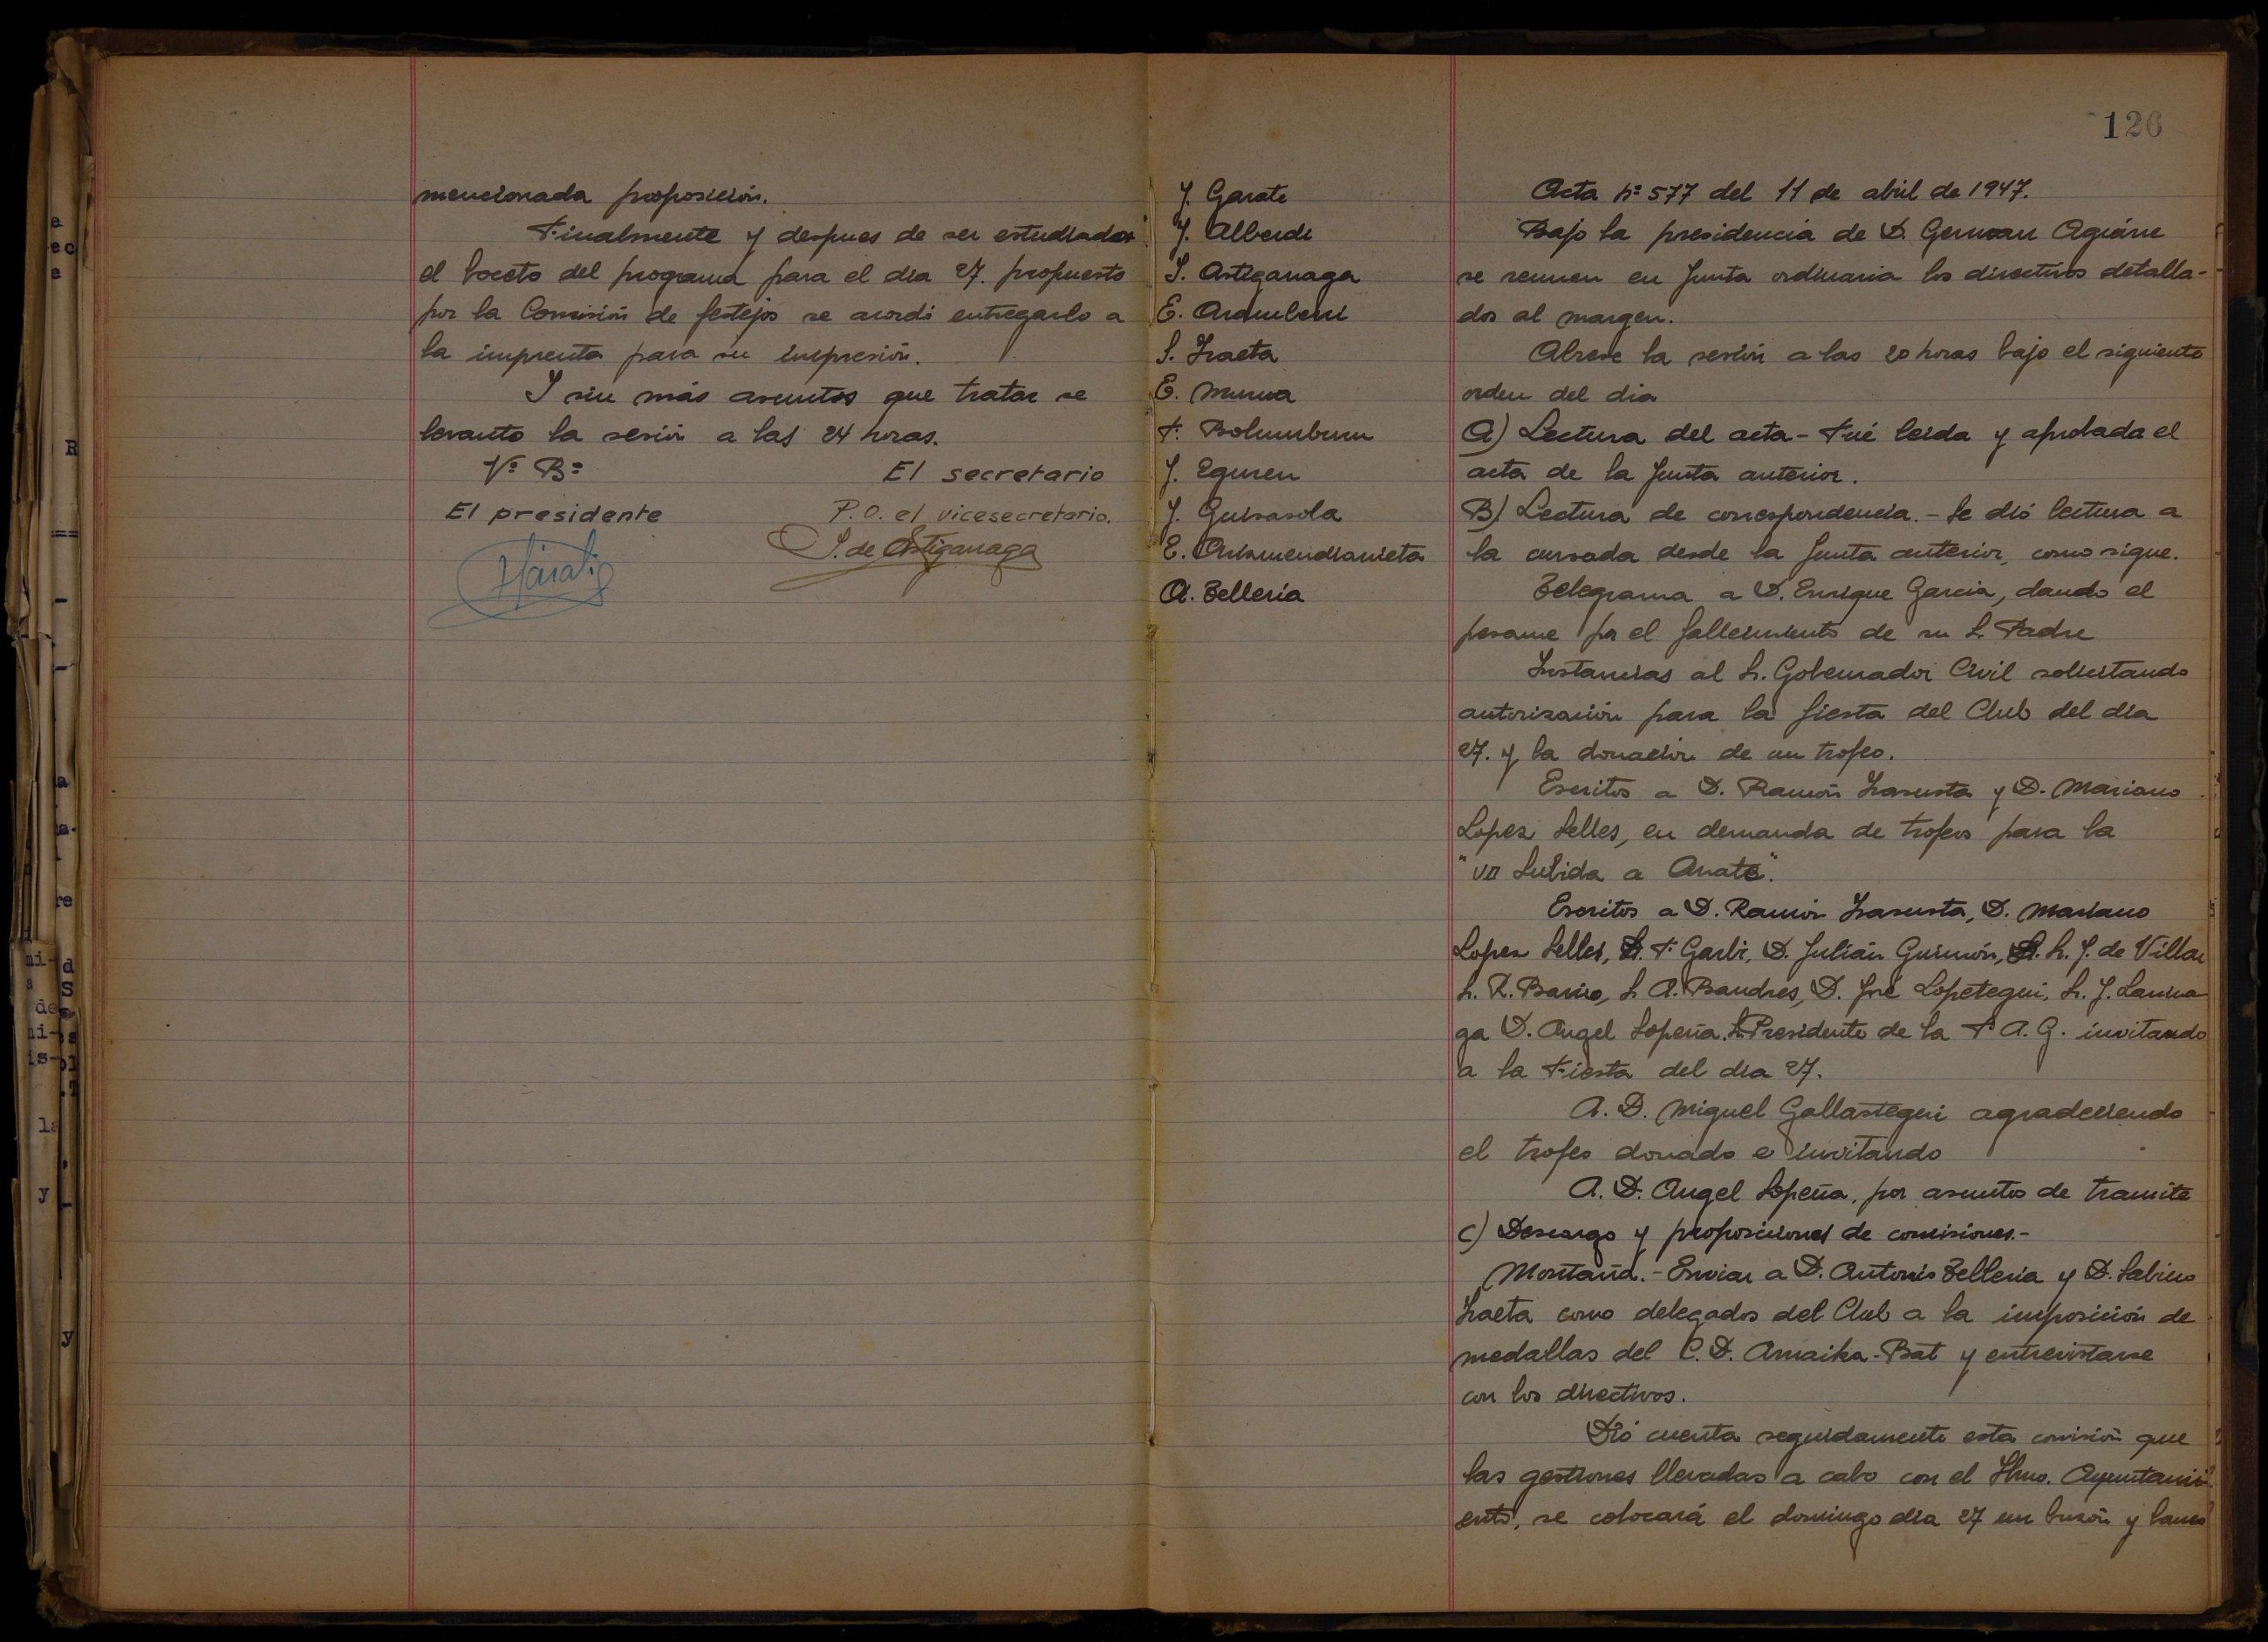 mencionada proposición.
Finalmente y despues de ser estudiados
el boceto del programa para el dia 27. propuesto
por la Comisión de festejos se acordó entregarlo a
la imprenta para su impresión.
Y sin más asuntos que tratar se
levanto la sesión a las 24 horas.
Vº Bº
El secretario
El presidente
P.O. el vicesecretario.
S. de Astiganaga
J. Garate
J. Alberdi
S. Astiganaga
E. Aramberri
S. Iraeta
E. Munua
F. Bolumburu
J. Eguren
J. Guisasola
E. Arizmendiarrieta
A. Telleria
126
Acta nº 577 del 11 de abril de 1947.
Bajo la presidencia de D. German Aguirre
se reunen en Junta ordinaria los directivos detalla-
dos al margen.
Abrese la sesión a las 20 horas bajo el siguiente
orden del dia
A) Lectura del acta - Fué leida y aprobada el
acta de la Junta anterior.
B) Lectura de correspondencia. - Se dió lectura a
la cursada desde la Junta anterior, como sigue.
Telegrama a D. Enrique Garcia, dando el
pesame por el fallecimiento de su Sr. Padre
Instancias al Sr. Gobernador Civil solicitando
autorización para la fiesta del Club del dia
27. y la donación de un trofeo.
Escritos a D. Ramón Irasusta y D. Mariano
Lopez Selles, en demanda de trofeos para la
"VII Subida a Arrate".
Escritos a D. Ramón Irasusta, D. Mariano
Lopez Selles, Sr. F. Garbi, D. Julián Guimón, Sr. J. de Villar
Sr. R. Barrio, Sr A. Bandres, D. José Lopetegui, Sr. J. Larrina
ga D. Angel Sopeña, Sr. Presidente de la F. A. G. invitando
a la Fiesta del dia 27.
A. D. Miguel Gallastegui agradeciendo
el trofeo donado e invitando
A. D. Angel Sopeña, por asuntos de tramite
C) Descargo y proposiciones de comisiones.-
Montaña. - Enviar a D. Antonio Telleria y D. Sabino
Iraeta como delegados del Club a la imposición de
medallas del C.D. Amaika-Bat y entrevistarse
con los directivos.
Dió cuenta seguidamente esta comisión que
las gestiones llevadas a cabo con el Iltmo. Ayuntami-
ento, se colocará el domingo dia 27 un buzón y banco